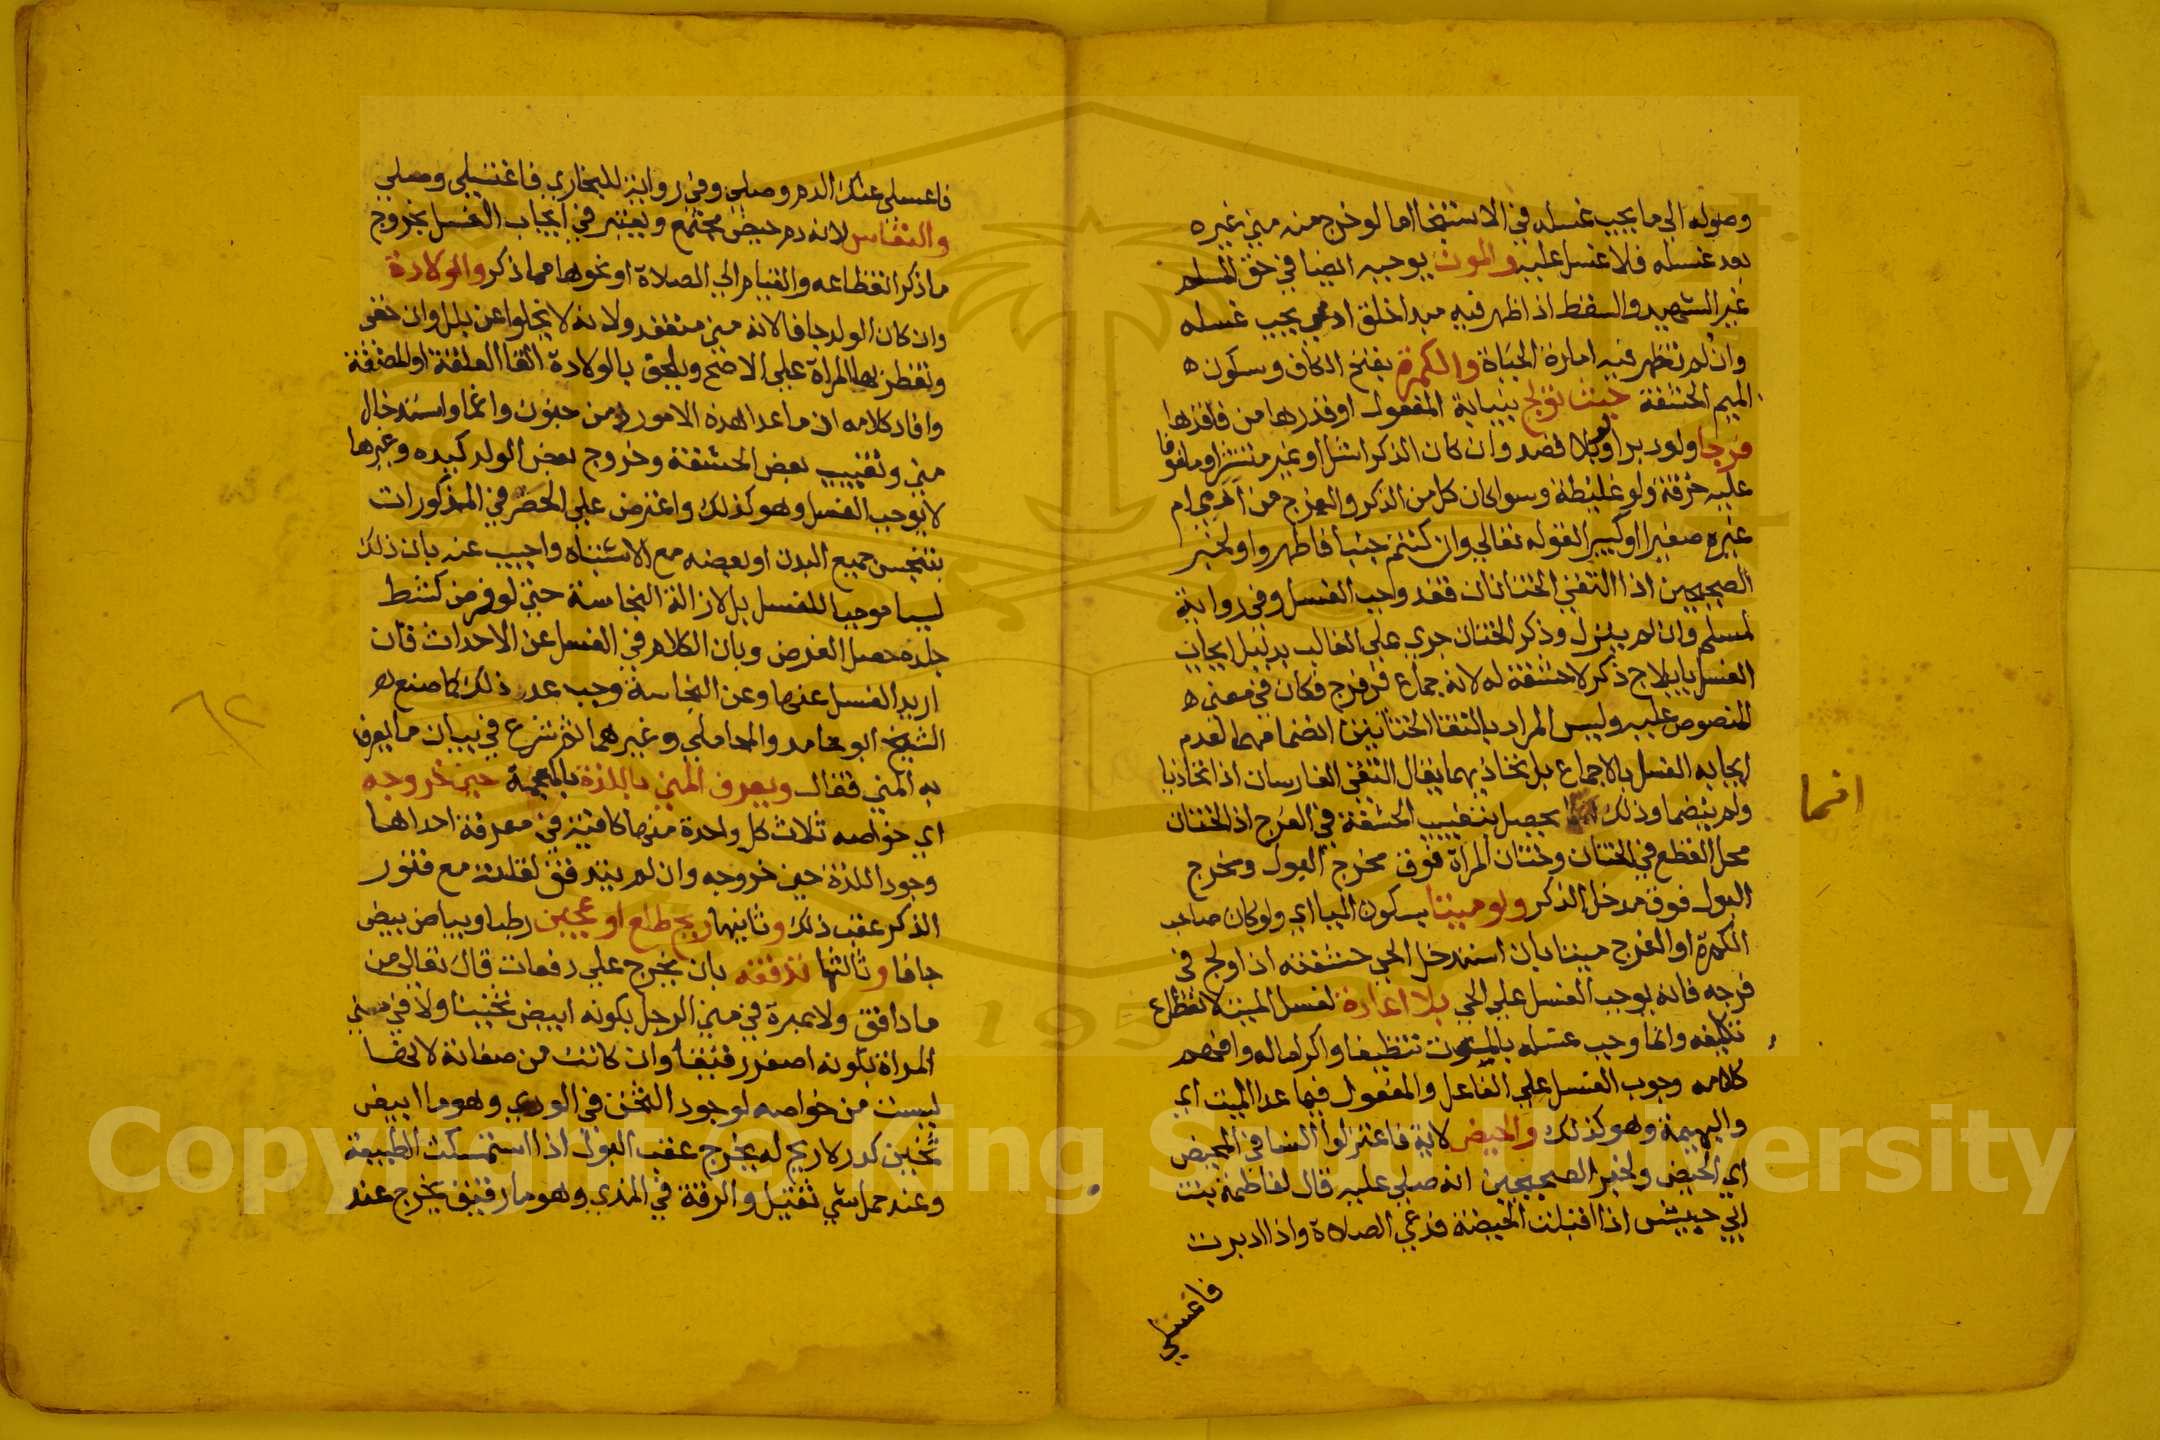 وصوله الي ما يجب غسله في الاستنجا اما لو خرج منه مني غيره
بعد غسله فلا غسل عليه والموت يوجبه ايضا في حق المسلم
غير الشهيد والسقط اذا ظهر فيه مبدا خلق ادمي يجب غسله
وان لم تظهر فيه امارة الحياة والكمرة بفتح الكاف وسكون ه
الميم الحشفة حيث تولج ببناية المفعول او قدرها من فاقدها
فرجا ولو دبرا او بلا قصد وان كان الذكر اشل او غير منتشر او ملفوفا
عليه خرقة ولو غليظة وسوا كان كل من الذكر والفرج من ادمي ام
غيره صغيرا او كبيرا لقوله تعالي وان كنتم جنبا فاطهروا ولخبر
الصحيحين اذا التقي الختانان فقد وجب الغسل وفي رواية
لمسلم وان لم ينزل وذكر الختان جري علي الغالب بدليل ايجاب
الغسل بايلاج ذكر لا حشفة له لانه جماع في فرج فكان في معني ه
المنصوص عليه وليس المراد بالتقا الختانين انضمامهما لعدم
ايجابه الغسل بالاجماع بل تحاذيهما يقال التقي الفارسان اذا تحاذيا
ولم ينضما وذلك يحصل بتغييب الحشفة في الفرج اذ الختان
انما
محل القطع في الختان وختان المراة فوق مخرج البول ومخرج
البول فوق مدخل الذكر ولو ميتا بسكون اليا اي ولو كان صاحب
الكمرة او الفرج ميتا بان استدخل الحي حشفته اذا اولج في
فرجه فانه يوجب الغسل علي الحي بلا اعادة لغسل الميت لانقطاع
تكليفه وانما وجب غسله بالموت تنظيفا واكراما له وافهم
كلامه وجوب الغسل علي الفاعل والمفعول فيما عدا الميت اي
والبهيمة وهو كذلك والحيض لاية فاعتزلوا النسا في المحيض
اي الحيض ولخبر الصحيحين انه صلي عليه قال لفاطمة بنت
ابي حبيش اذا اقبلت الحيضة فدعي الصلاة واذا ادبرت
فاغسلي
فاغسلي عنك الدم وصلي وفي رواية للبخاري فاغتسلي وصلي
والنفاس لانه دم حيض مجتمع ويعتبر في ايجاب الغسل بخروج
ما ذكر انقطاعه والقيام الي الصلاة او نحوها مما ذكر والولادة
وان كان الولد جافا لانه مني منعقد ولانه لا يخلوا عن بلل وان خفي
وتفطر بها المراة علي الاصح ويلحق بالولادة القا العلقة او المضغة
وافاد كلامه ان ما عدا هذه الامور من جنون واغما واستدخال
مني وتغييب بعض الحشفة وخروج بعض الولد كيده وغيرها
لا يوجب الغسل وهو كذلك واعترض علي الحصر في المذكورات
بتنجس جميع البدن او بعضه مع الاشتباه واجيب عنه بان ذلك
ليس موجبا للغسل بل لازالة النجاسة حتي لو فرض كشط
جلده حصل الغرض وبان الكلام في الغسل عن الاحداث فان
اريد الغسل عنها وعن النجاسة وجب عدد ذلك كما صنع ه
الشيخ ابو حامد والمحاملي وغيرهما ثم شرع في بيان ما يعرف
به المني فقال ويعرف المني باللذة بالمعجمة حين خروجه
اي خواصه ثلاث كل واحدة منها كافية في معرفة احداها
وجود اللذة حين خروجه وان لم يتدفق لقلته مع فتور
الذكر عقب ذلك وثانيها ريح طلع او عجين رطبا وبياض بيض
جافا وثالثها تدفقه بان يخرج علي دفعات قال تعالي من
ما دافق ولا عبرة في مني الرجل بكونه ابيض ثخينا ولا في مني
المراة بكونه اصفر رقيقا وان كانت من صفاته لانها
ليست من خواصه لوجود الثخن في الودي وهو ما ابيض
ثخين كدر لا ريح له يخرج عقب البول اذا استمسكت الطبيعة
وعند حمل شي ثقيل والرقة في المذي وهو ما رقيق يخرج عند
Copyright © King Saud University
195